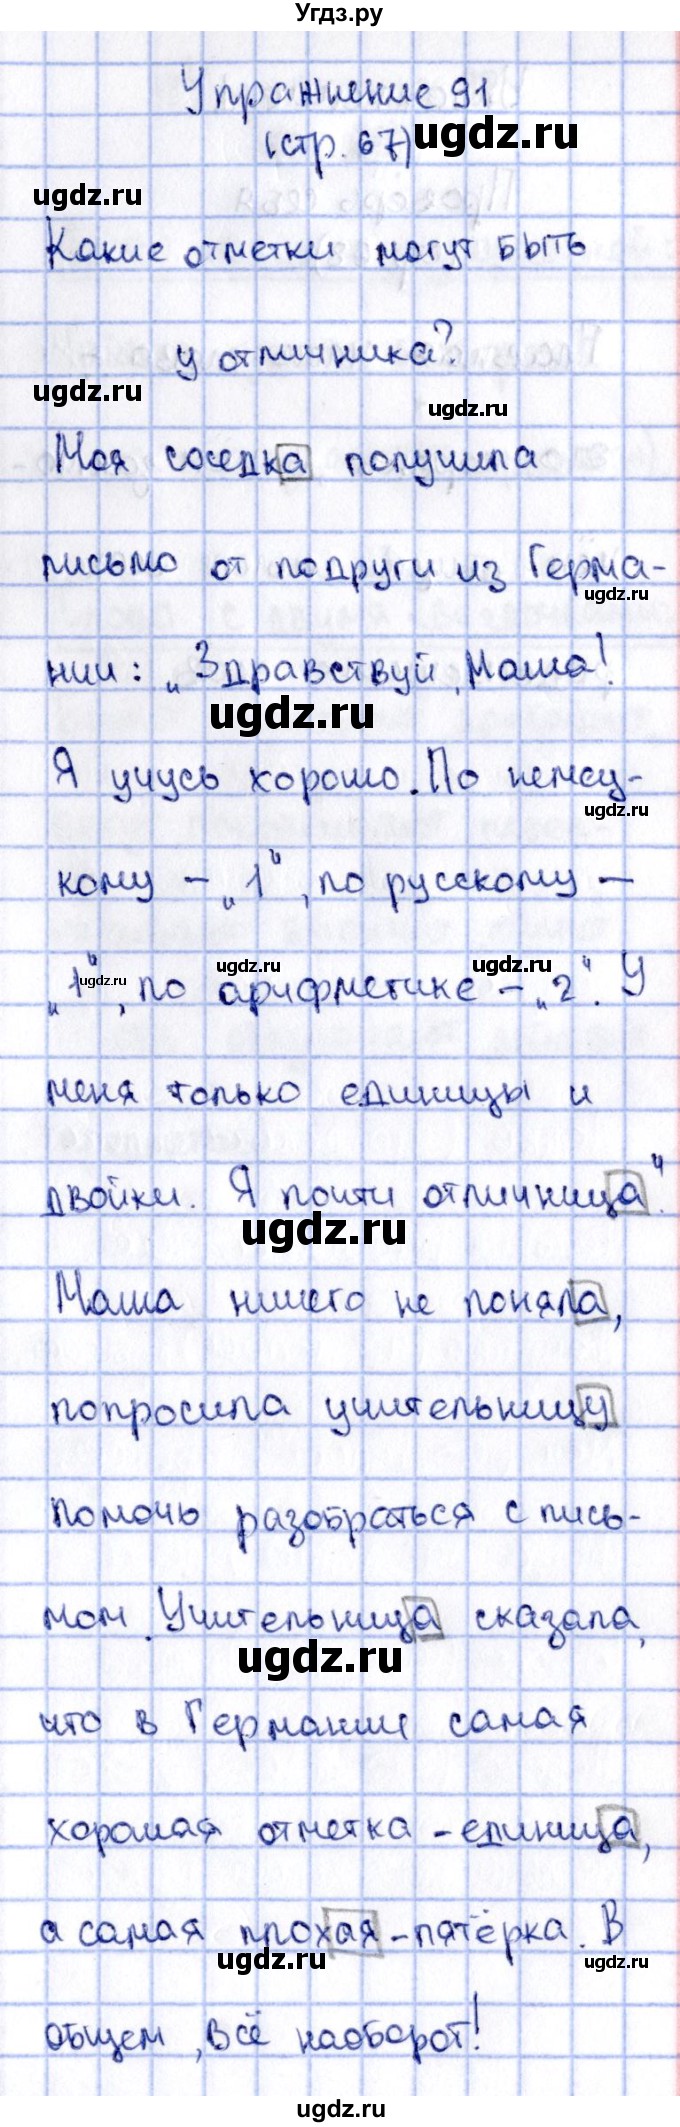 Угдз.ру
Упражнение 91
(стр. 67)
ugdz.ru
ugdz.ru
Какие отметки могут быть
у отличника?
ugdz.ru
ugdz.ru
Моя соседка получила
письмо от подруги из Герма-
ugdz.ru
нии: „Здравствуй, Маша!
ugdz.ru
Я учусь хорошо. По немец-
ugdz.ru
кому – „1“, по русскому –
ugdz.ru ugdz.ru ugdz.ru
„1“, по арифметике – „2“. У
меня только единицы и
двойки. Я почти отличница“.
ugdz.ru
Маша ничего не поняла,
попросила учительницу
помочь разобраться с пись-
мом. Учительница сказала,
ugdz.ru
что в Германии самая
хорошая отметка – единица,
а самая плохая – пятёрка. В
ugdz.ru ugdz.ru
общем, всё наоборот!
ugdz.ru